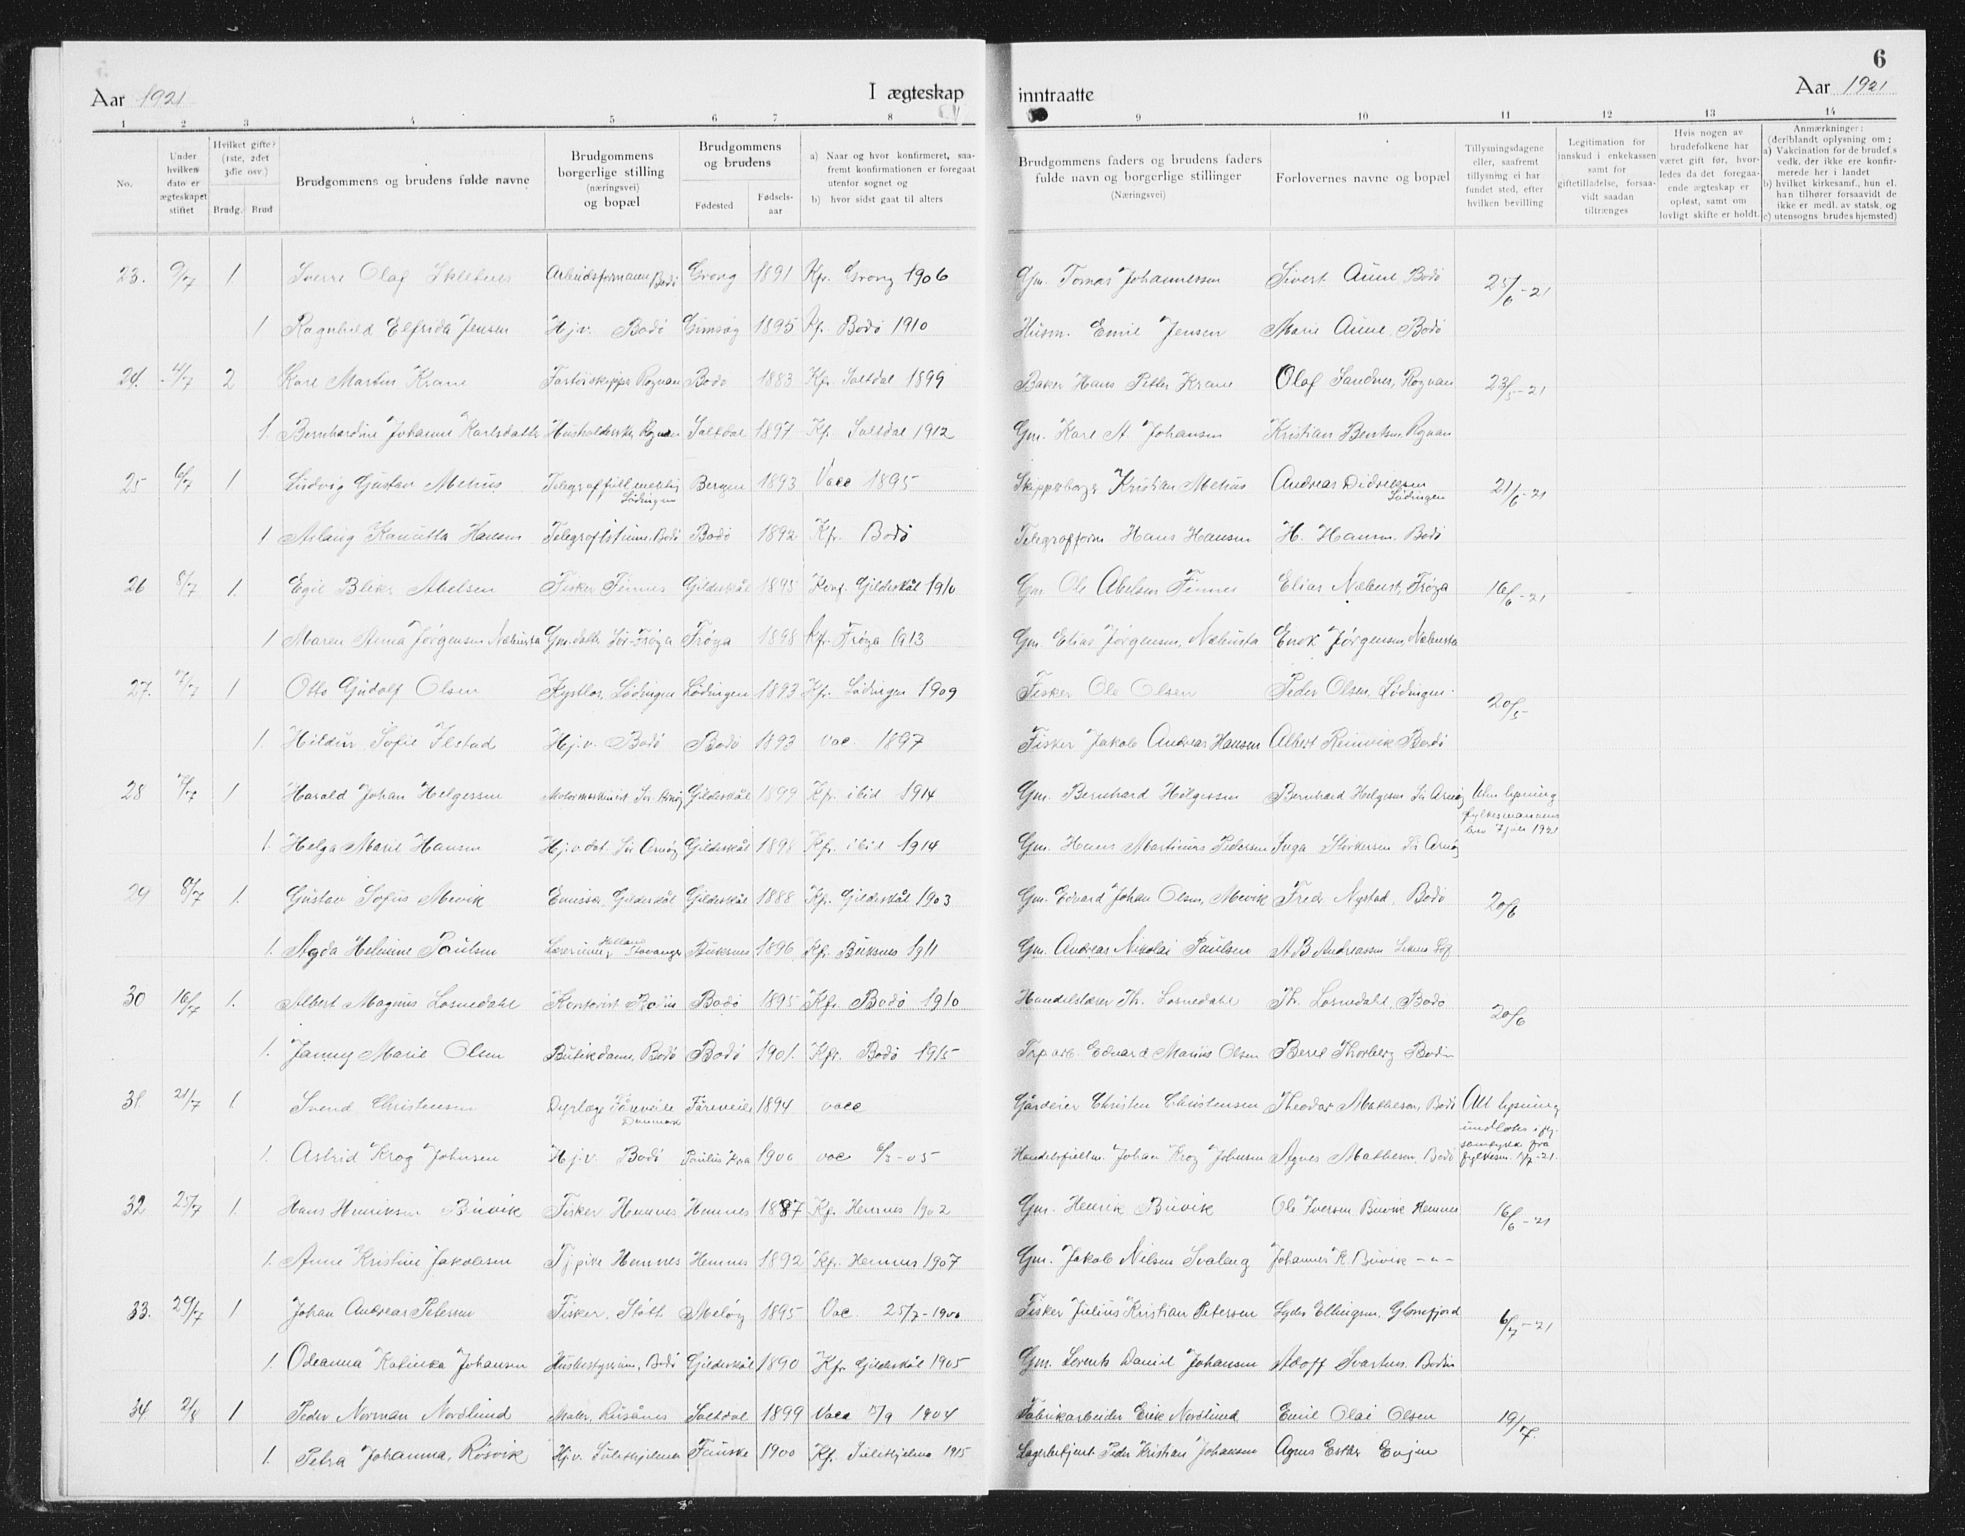 6
Aar 1921 I ægteskap inntraatte Aar 1921
1 2 3 4 5 6 7 8 9 10 11 12 13 14
No.
Under hvilken dato er ægteskapet stiftet
Hvilket gifte? (1ste, 2det 3die osv.)
Brudg. Brud
Brudgommens og brudens fulde navne
Brudgommens borgerlige stilling (næringsvei) og bopæl
Brudgommens og brudens
Fødested Fødsels-aar
a) Naar og hvor konfirmeret, saafremt konfirmationen er foregaat utenfor sognet og
b) hvor sidst gaat til alters
Brudgommens faders og brudens faders fulde navn og borgerlige stillinger (Næringsvei)
Forlovernes navne og bopæl
Tillysningsdagene eller, saafremt tillysning ei har fundet sted, efter hvilken bevilling
Legitimation for innskud i enkekassen samt for giftetilladelse, forsaavidt saadan tiltrænges
Hvis nogen av brudefolkene har været gift før, hvorledes da det foregaaende ægteskap er opløst, samt om lovligt skifte er holdt.
Anmærkninger: (deriblandt oplysning om; a) Vakcination for de brudef.s vedk. der ikke ere konfirmerede her i landet
b) hvilket kirkesamf., hun el. han tilhører forsaavidt de ikke er medl. av statsk. og
c) utensogns brudes hjemsted)
23. 9/7 1. Sverre Olaf Arbeidsformann, Bodö Grong 1891 Kfr. Grong 1906 Gm. Tomas Johannessen Sivert Aune, Bodö 25/6-21
1 Ragnhild Elfrida Jensen Hj.v. Bodö Gimsøy 1895 Kfr. Bodö 1910 Husm. Emil Jensen Marie Aune, Bodö
24. 4/7 2 Karl Martin Krane Rognan Bodö 1883 Kfr. Saltdal 1899 Baker Hans Petter Krane Olaf Sandnes, Rognan 23/5-21
1. Bernhardine Johanne Karlsdatter Rognan Saltdal 1897 Kf. Saltdal 1912 Gm. Karl A. Johansen Kristian Bentsen, Rognan
25 6/7 1 Ludvig Gustav Mehus Lödingen Bergen 1893 Vacc 1895 Kristian Mehus Andreas Didriksen Lödingen 21/6-21
1 Aslaug Hansen Bodö Bodö 1892 Kfr. Bodö Hans Hansen H. Hansen, Bodö
26 8/7 1. Egil Abelsen Fisker Finnes Gildeskål 1895 Konf. Gildeskål 1910 Gm. Ole Abelsen Finnes Elias Frøya 16/6-21
1 Maren Anna Jørgensen Gm.datter Sør-Frøya Frøya 1898 Kfr. Frøya 1913 Gm. Elias Jørgensen Enok Jørgensen
27. 7/7 1 Otto Gudolf Olsen Lödingen Lödingen 1893 Kfr. Lödingen 1909 Fisker Ole Olsen Peder Olsen, Lödingen 20/5
1. Hildur Sofie Ilstad Hj.v. Bodö Bodö 1893 vac. 1897 Fisker Jakob Andreas Hansen Albert Reinvik Bodö
28 7/7 1 Harald Johan Helgessen Motormaskinist Gildeskål 1899 Kfr. ibid. 1914 Gm. Bernhard Helgessen Bernhard Helgesen Sør Arnöy Uten lysning fylkesmannens brev 7 juli 1921
1. Helga Marie Hansen Hj.v.dat. Sør Arnöy Gildeskål 1898 Kfr. ibid. 1914 Gm. Hans Martinus Pedersen Inga Störkersen Sør Arnöy
29 8/7 1. Gustav Sofus Mevik Emissær, Gildeskål Gildeskål 1888 Kfr. Gildeskål 1903 Gm. Edvard Johan Olsen, Mevik Fredr. Nystad, Bodö 20/6
1. Agda Helmine Paulsen Stavanger Buksnes 1896 Kfr. Buksnes 1911 Gm. Andreas Nikolai Paulsen A.B. Andreassen
30 16/7 1. Albert Magnus Losnedahl Kontorist Bodin Bodö 1895 Kfr. Bodö 1910 Handelslærer Th. Losnedahl Th. Losnedahl, Bodö 20/6
1. Janny Marie Olsen Butikdame, Bodö Bodö 1901. Kfr. Bodö 1915 Edvard Marius Olsen Beret Thorberg Bodin
31 21/7 1. Svend Christensen Dyrlæge Fåreveile Danmark Fåreveile 1894 vacc Gårdeier Christen Christensen Theodor Mathesen, Bodö Alt lysning undlates i flg. samtykke fra fylkesm. 1/7-21.
1. Astrid Krog Johnsen Hj.v. Bodö 1900 vac 6/3-05 Johan Krog Johnsen Agnes Mathesen, Bodö
32 25/7 1. Hans Henriksen Buvik Fisker Hemnes Hemnes 1887 Kf. Hemnes 1902 Gm. Henrik Buvik Ole Iversen Buvik Hemnes 16/6-21
1. Anne Kristine Jakobsen Tj.pike Hemnes Hemnes 1892 Kfr. Hemnes 1907 Gm. Jakob Nilsen Svaleng Johannes K. Buvik -"-
33. 29/7 1 Johan Andreas Petersen Fisker, Stött Meløy 1895 Vac. 25/7-1900 Fisker Julius Kristian Petersen Lyder Ellingsen, Glomfjord 6/7-21
1. Odeanna Katinka Johansen Husbestyrerinne, Bodö Gildeskål 1890 Kfr. Gildeskål 1905 Gm. Lorents Daniel Johansen Adolf Svartnes. Bodin
34 2/8 1 Peder Norman Nordlund Maler, Rusånes Saltdal 1899 Vacc 15/9 1904 Fabrikarbeider Erik Nordlund Emil Olai Olsen 19/7.
1. Petra Johanna, Rösvik Hj.v. Sulitjelma Fauske 1900 Kf. Sulitjelma 1915 Lagerbetjent Peder Kristian Johansen Agnes Ester Evjen